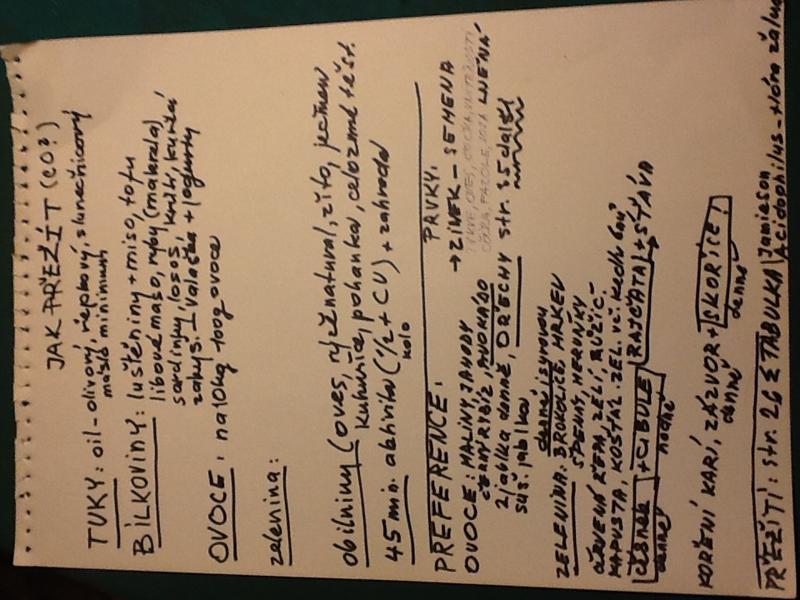 JAK PŘEŽÍT (CO?)
TUKY: oil-olivový, řepkový, slunečnicový
máslo minimum
BÍLKOVINY: luštěniny + miso, tofu
libové maso, ryby (makrela)
sardinky, losos, krůtí, kuřecí
zakys. I Valaška + jogurty
OVOCE: na 10kg 100g ovoce
zelenina:
obilniny (oves, rýže natural, žito, ječmen
kukuřice, pohanka, celozrnné těst.
45 min. aktivita (1/2 + CV) + zahrada
kolo
PREFERENCE:
OVOCE: MALINY, JAHODY
ČERNÝ RYBÍZ, AVOKÁDO
2 jablka denně, OŘECHY str. 35 další
suš. jablka,
PRVKY:
→ ZINEK - SEMENA
LNĚNÁ
denně i syrovou
ZELENINA: BROKOLICE, MRKEV
ŠPENÁT, MERUŇKY
ČERVENÁ ŘEPA, ZELÍ, RŮŽIČ-
KAPUSTA, KOŠŤÁL. ZEL. vč.
ČESNEK + CIBULE RAJČATA + ŠŤÁVA
denně hodně
KOŘENÍ KARI, ZÁZVOR + SKOŘICE!
denně denně
PŘEŽITÍ: str. 26 Σ TABULKA Jamieson
Acidophilus -